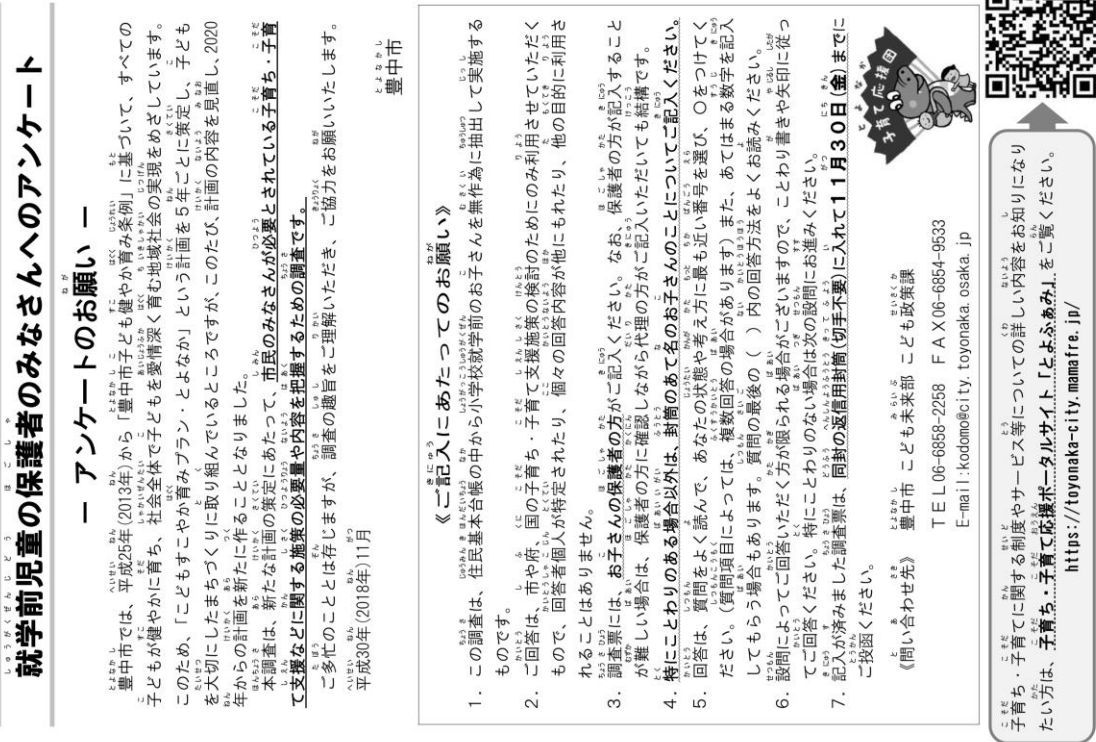 就学前児童の保護者のみなさんへのアンケート
― アンケートのお願い ―
豊中市では、平成25年(2013年)から「豊中市子ども健やか育み条例」に基づいて、すべての
子どもが健やかに育ち、社会全体で子どもを愛情深く育む地域社会の実現をめざしています。
このため、「こどもすこやか育みプラン・とよなか」という計画を5年ごとに策定し、子ども
を大切にしたまちづくりに取り組んでいるところですが、このたび、計画の内容を見直し、2020
年からの計画を新たに作ることとなりました。
本調査は、新たな計画の策定にあたって、市民のみなさんが必要とされている子育ち・子育
て支援などに関する施策の必要量や内容を把握するための調査です。
ご多忙のこととは存じますが、調査の趣旨をご理解いただき、ご協力をお願いいたします。
平成30年(2018年)11月
豊中市
《ご記入にあたってのお願い》
1. この調査は、住民基本台帳の中から小学校就学前のお子さんを無作為に抽出して実施する
ものです。
2. ご回答は、市や府、国の子育ち・子育て支援施策の検討のためにのみ利用させていただく
もので、回答者個人が特定されたり、個々の回答内容が他にもれたり、他の目的に利用さ
れることはありません。
3. 調査票には、お子さんの保護者の方がご記入ください。なお、保護者の方が記入すること
が難しい場合は、保護者の方に確認しながら代理の方がご記入いただいても結構です。
4. 特にことわりのある場合以外は、封筒のあて名のお子さんのことについてご記入ください。
5. 回答は、質問をよく読んで、あなたの状態や考え方に最も近い番号を選び、○をつけてく
ださい。（質問項目によっては、複数回答の場合があります）また、あてはまる数字を記入
してもらう場合もあります。質問の最後の（ ）内の回答方法をよくお読みください。
6. 設問によってご回答いただく方が限られる場合がございますので、ことわり書きや矢印に従っ
てご回答ください。特にことわりのない場合は次の設問にお進みください。
7. 記入が済みました調査票は、同封の返信用封筒(切手不要)に入れて11月30日(金)までに
ご投函ください。
《問い合わせ先》 豊中市 こども未来部 こども政策課
TEL06-6858-2258 FAX06-6854-9533
E-mail:kodomo@city.toyonaka.osaka.jp
とよなか
子育て応援団
子育ち・子育てに関する制度やサービス等についての詳しい内容をお知りになり
たい方は、子育ち・子育て応援ポータルサイト「とよふぁみ」をご覧ください。
https://toyonaka-city.mamafre.jp/